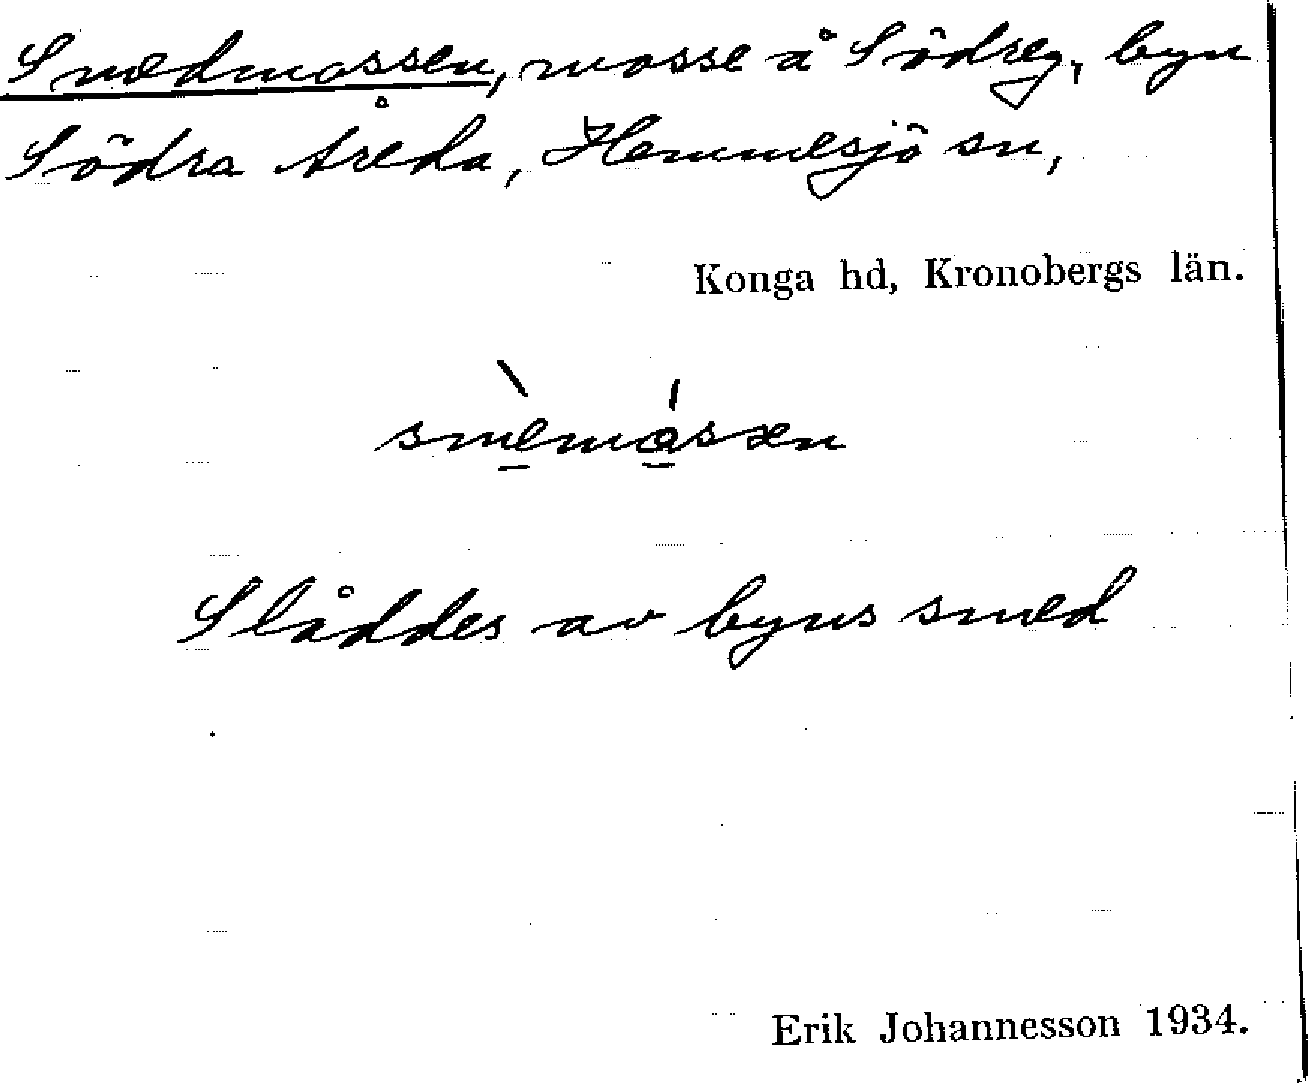 Smedmossen, mosse å Södreg, byn
Södra Åreda, Hemmesjö sn,
Konga hd, Kronobergs län.
Slåddes av byns smed
Erik Johannesson 1934.